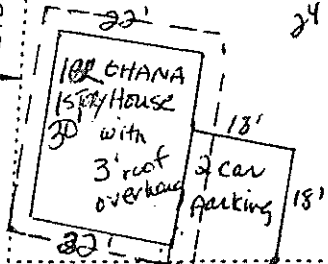 22'
24
1BR OHANA
1STRY HOUSE
30' with
3' roof
overhang
18'
2 car
parking
18'
22'